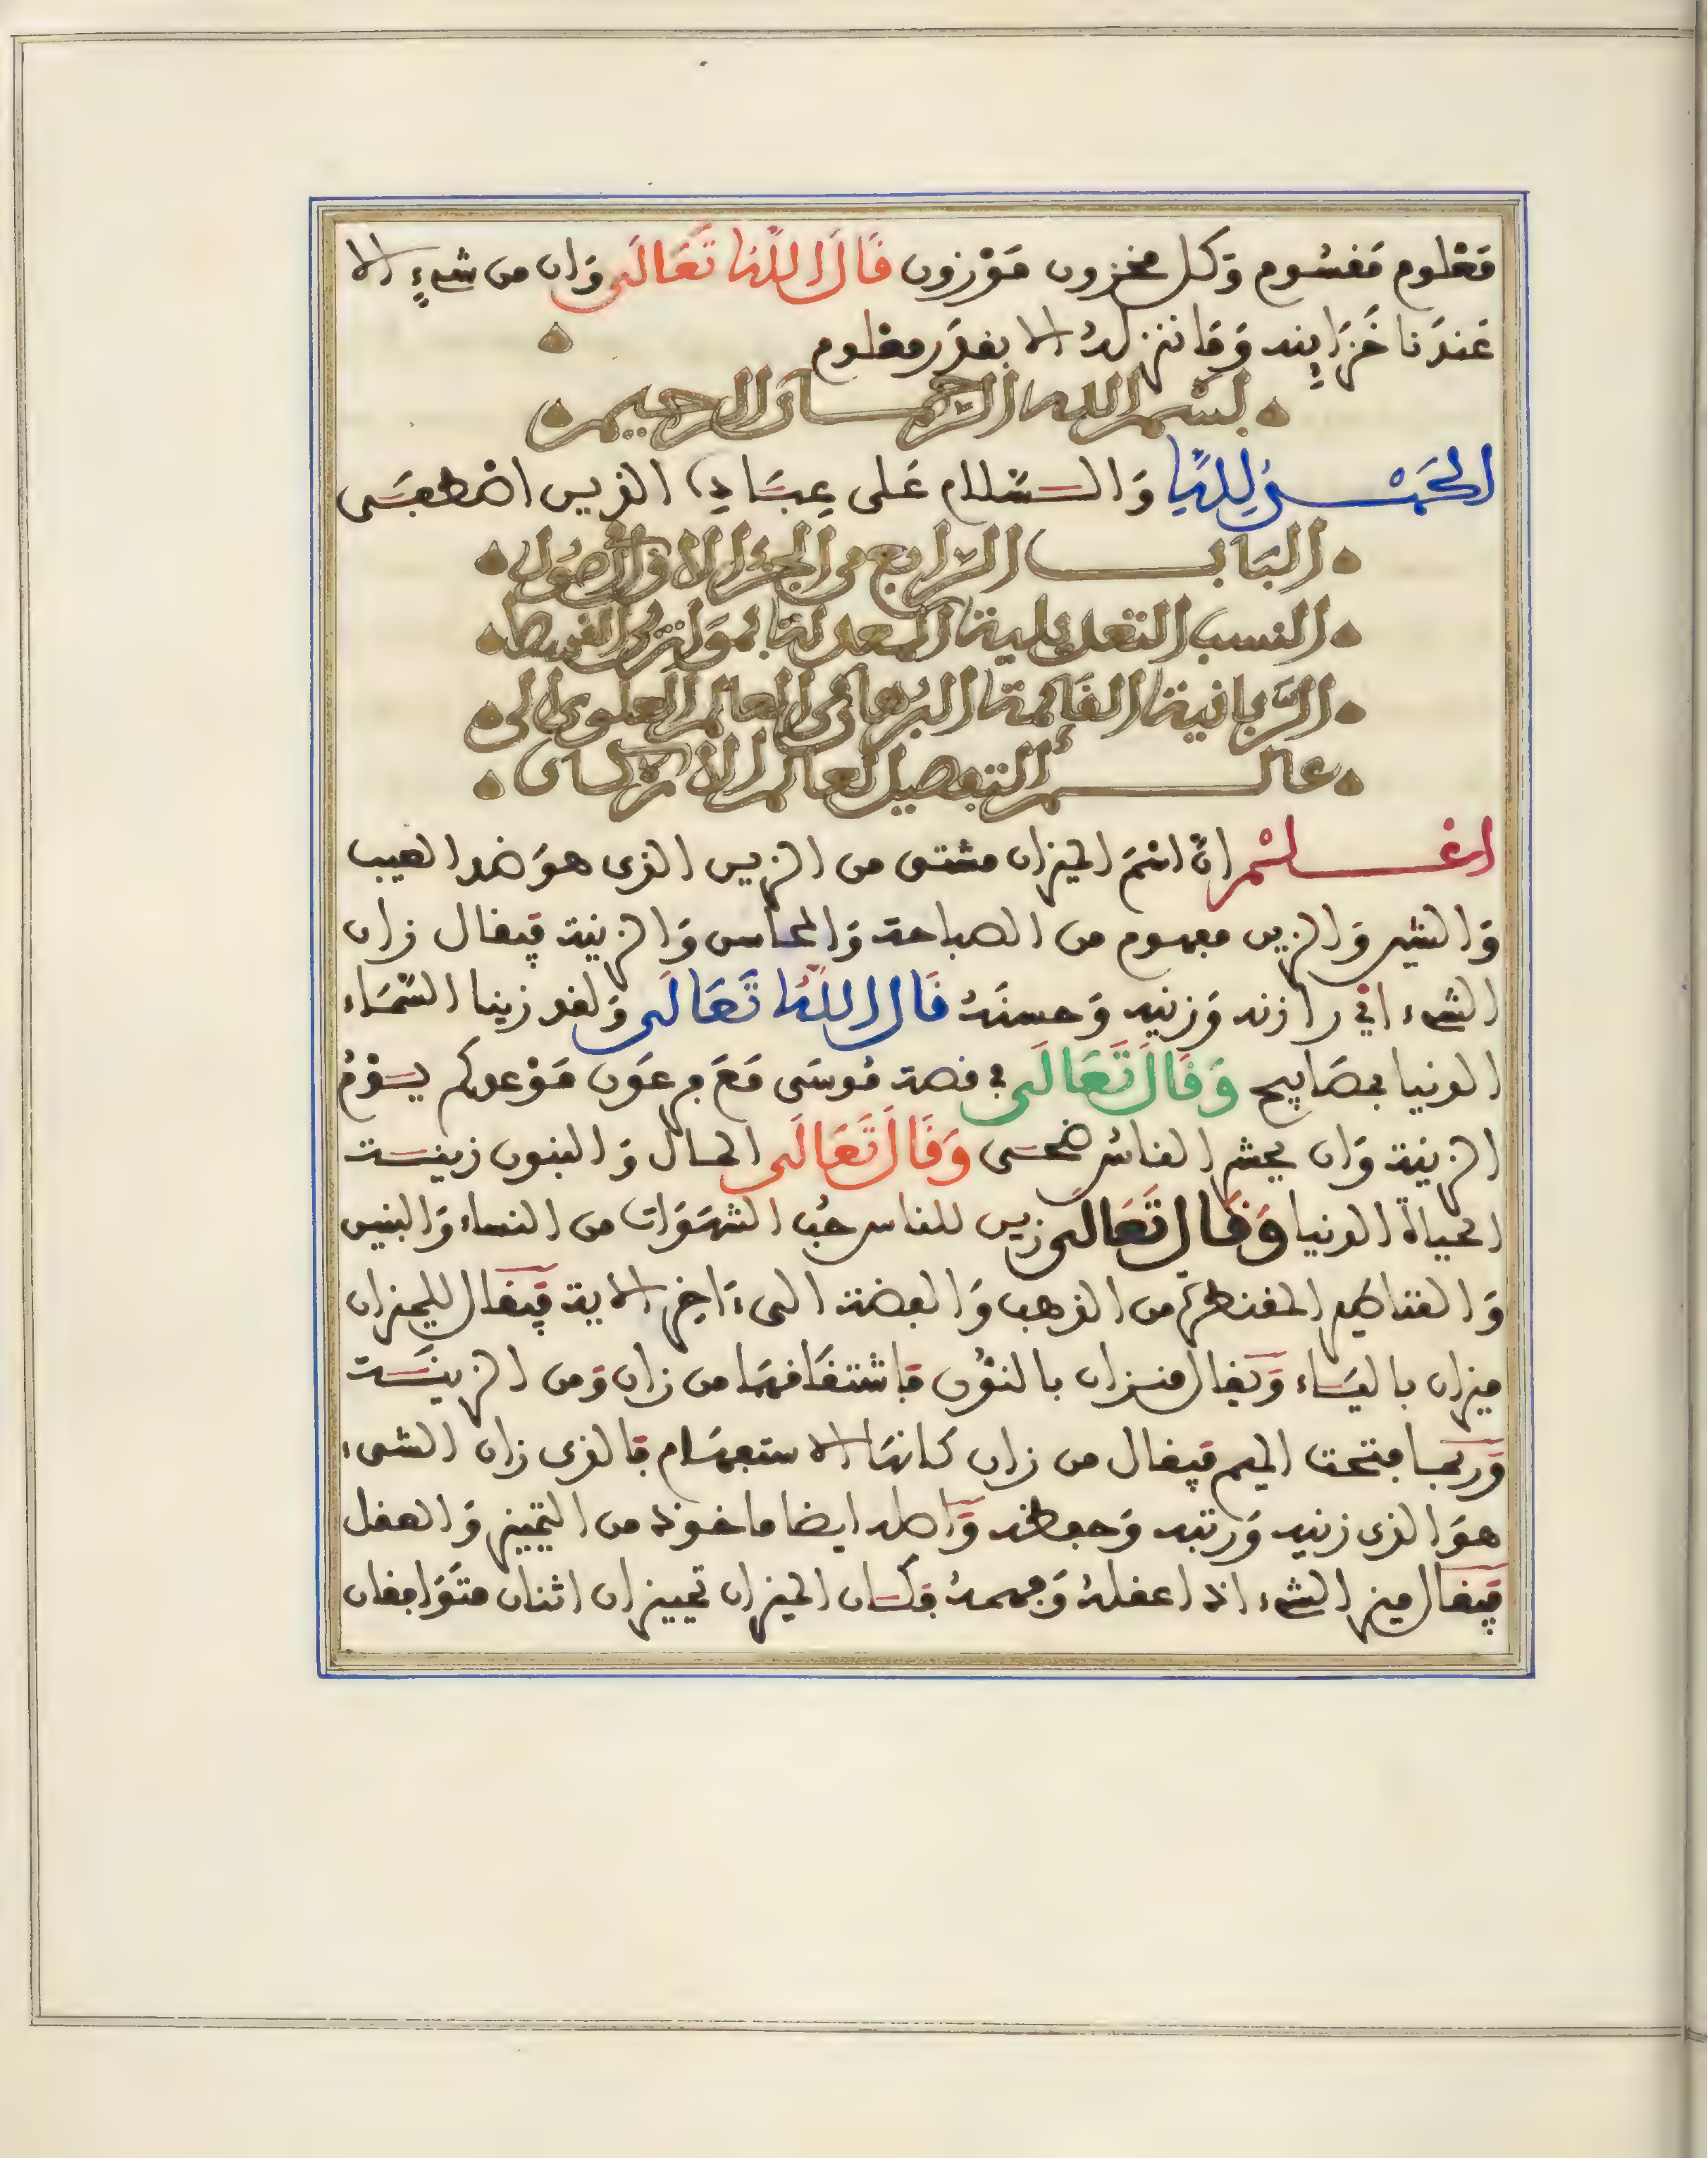 مَعْلوم مَقسُوم وَكل مخزون مَوْزون قَالَ اللهُ تَعَالَى وَان من شىءٍ الا
عَندَنا خَزَاينه وَمَا ننزله الا بقدَر معْلوم
بسْم الله الرّحمان الرحيم
الحَمْد لِلهِ وَالسّلام عَلى عِبَادِه الذين اصْطفَى
البَاب الرّابع فى الجزء الاوّل أصُول
النسب التعديلية المعدلة بموازين القسط
الرّبانية القائمة البُرهان فى العالم العلوى الى
عالم التفصيل لعالم الاركان
اعْلمْ انّ اسْمَ الميزان مشتق من الزين الذى هوَ ضد العيب
وَالشين وَالزين مفهوم من الصباحة وَالمحاسن وَالزينة فيقال زان
الشىء اذا زانه وَزينه وَحسنَهُ قَالَ اللهُ تَعَالَى وَلقد زينا السّمَاء
الدنيا بمصَابيح وَقَالَ تَعَالَى فى قصة مُوسَى مَعَ فرعَون مَوْعدكم يَوْمُ
الزينة وَان يحشر الناسُ ضحَى وَقَالَ تَعَالَى المال وَالبنون زينَة
الحياة الدنيا وَقَالَ تَعَالَى زين للناس حُب الشهوَات من النساء وَالبنين
وَالقناطير المقنطرة من الذهب وَالفضة الىءَاخِر الاية فيقال للميزان
ميزان باليَاء وَيقال منزان بالنوْن فاشتقَاقهمَا من زان وَمن الزينَة
وَربمَا فتحت الميم فيقال من زان كانهَا الاستفهَام فالذى زان الشىء
هوَ الذى زينه وَرتبه وَحفظه وَاصله ايضا ماخوذ من التمييز وَالعقل
فيقَال ميز الشىء اذا عقلهُ وَفهمهُ فكَان الميزان تمييزان اثنان متوَافقان